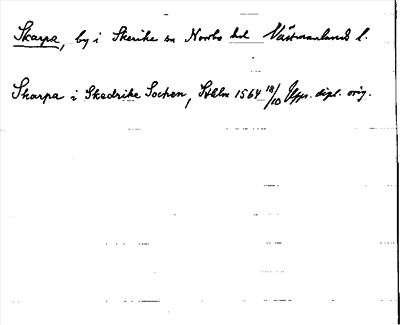 Skarpa, by i Skerike sn Norrbo hd Västmanlands l.
Skarpa i Skedrike Sochen, Sthlm 1564 18/10 Upps. dipl. orig.